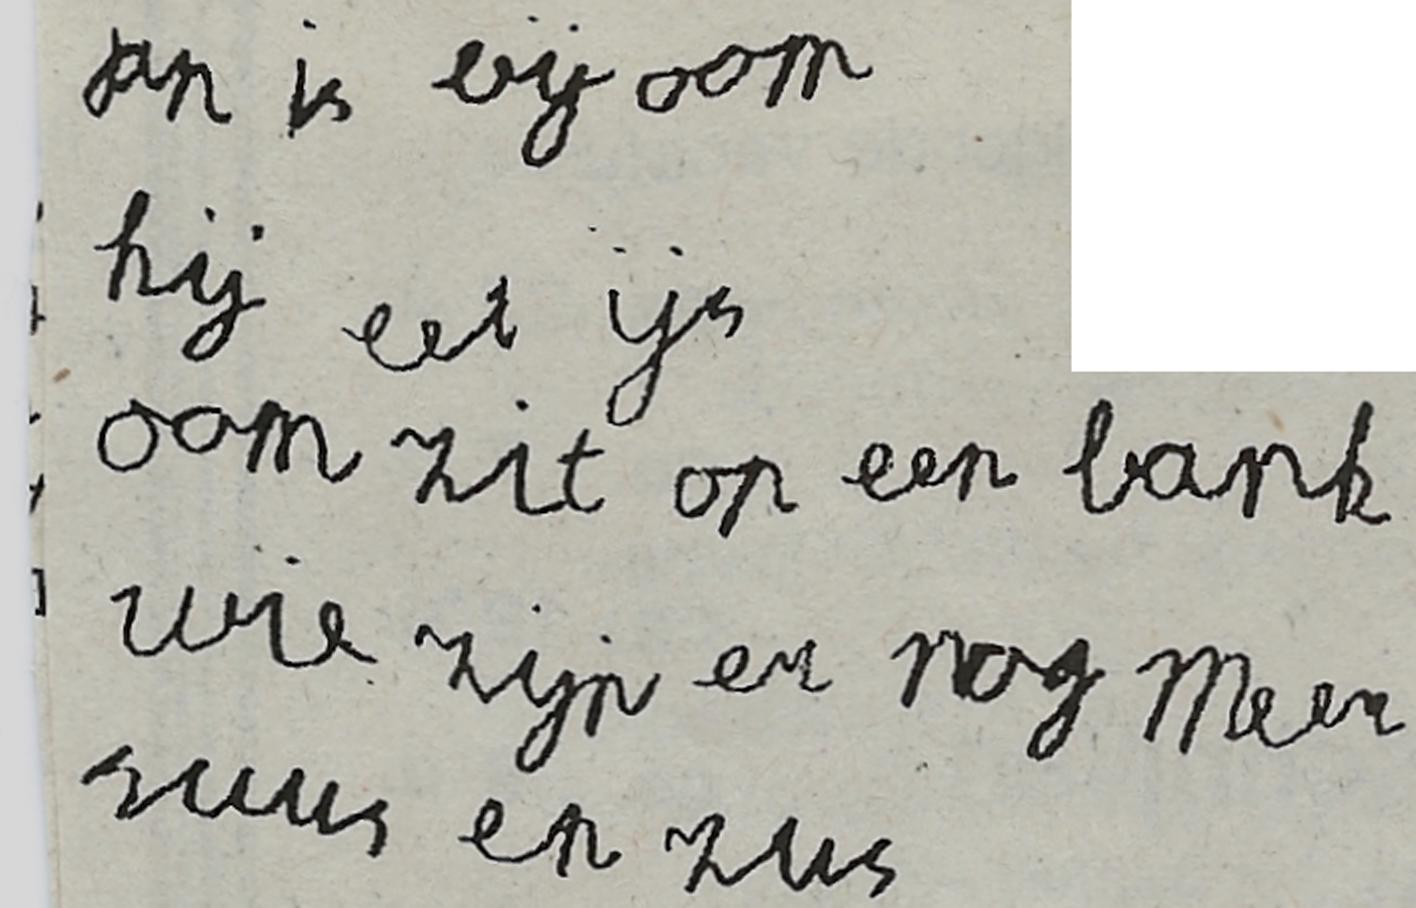 jan is bij oom
hij eet ijs
oom zit op een bank
wie zijn er nog meer
suus en zus